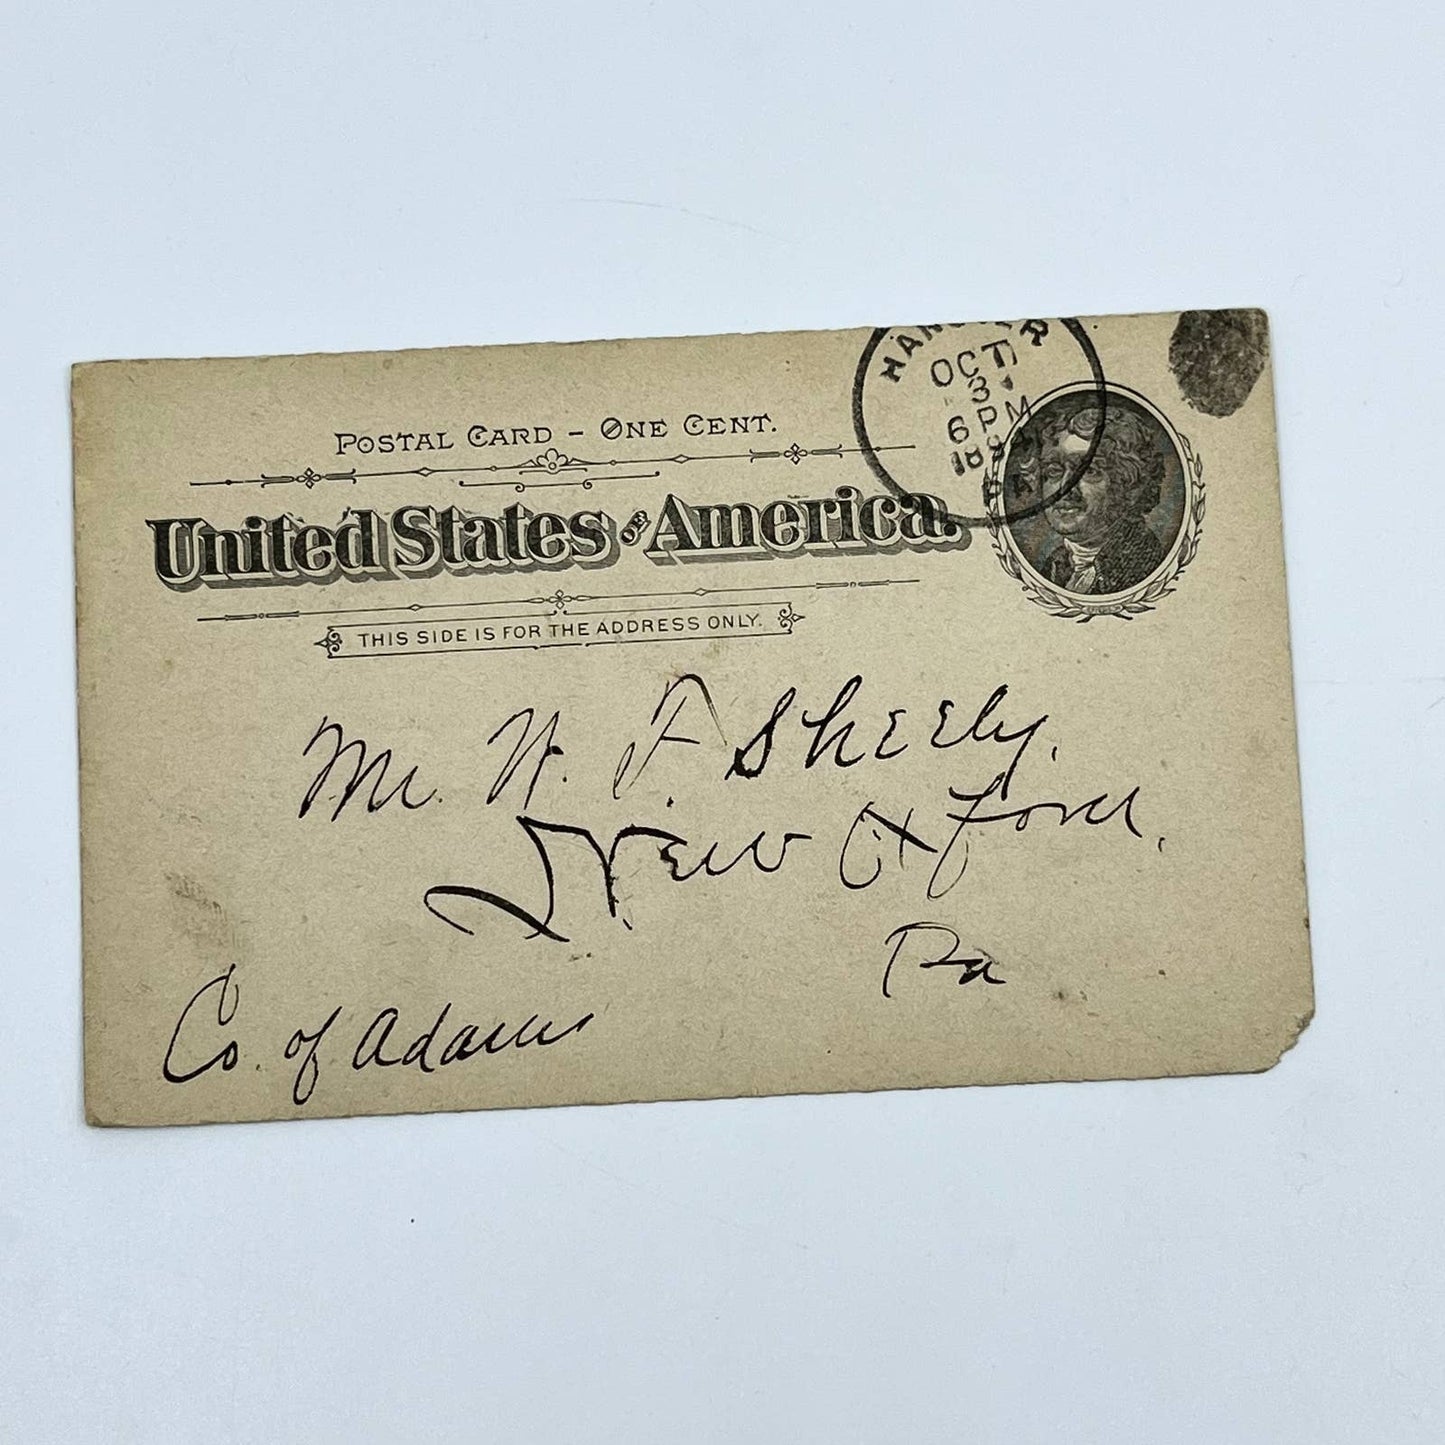 POSTAL CARD – ONE CENT.
United States of America.
THIS SIDE IS FOR THE ADDRESS ONLY.
HANOVER
OCT
3
6 PM
PA
Mr. W. F. Sheely.
New Oxford,
Pa
Co. of Adams